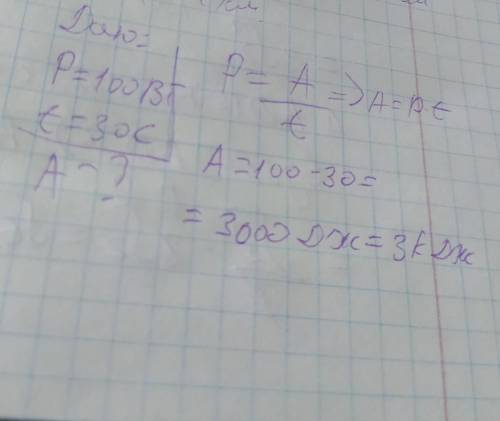 Дано:
P=100Вт
t=30с
A-?
P=A/t=>A=Pt
A=100-30=
=3000Дж=3kДж